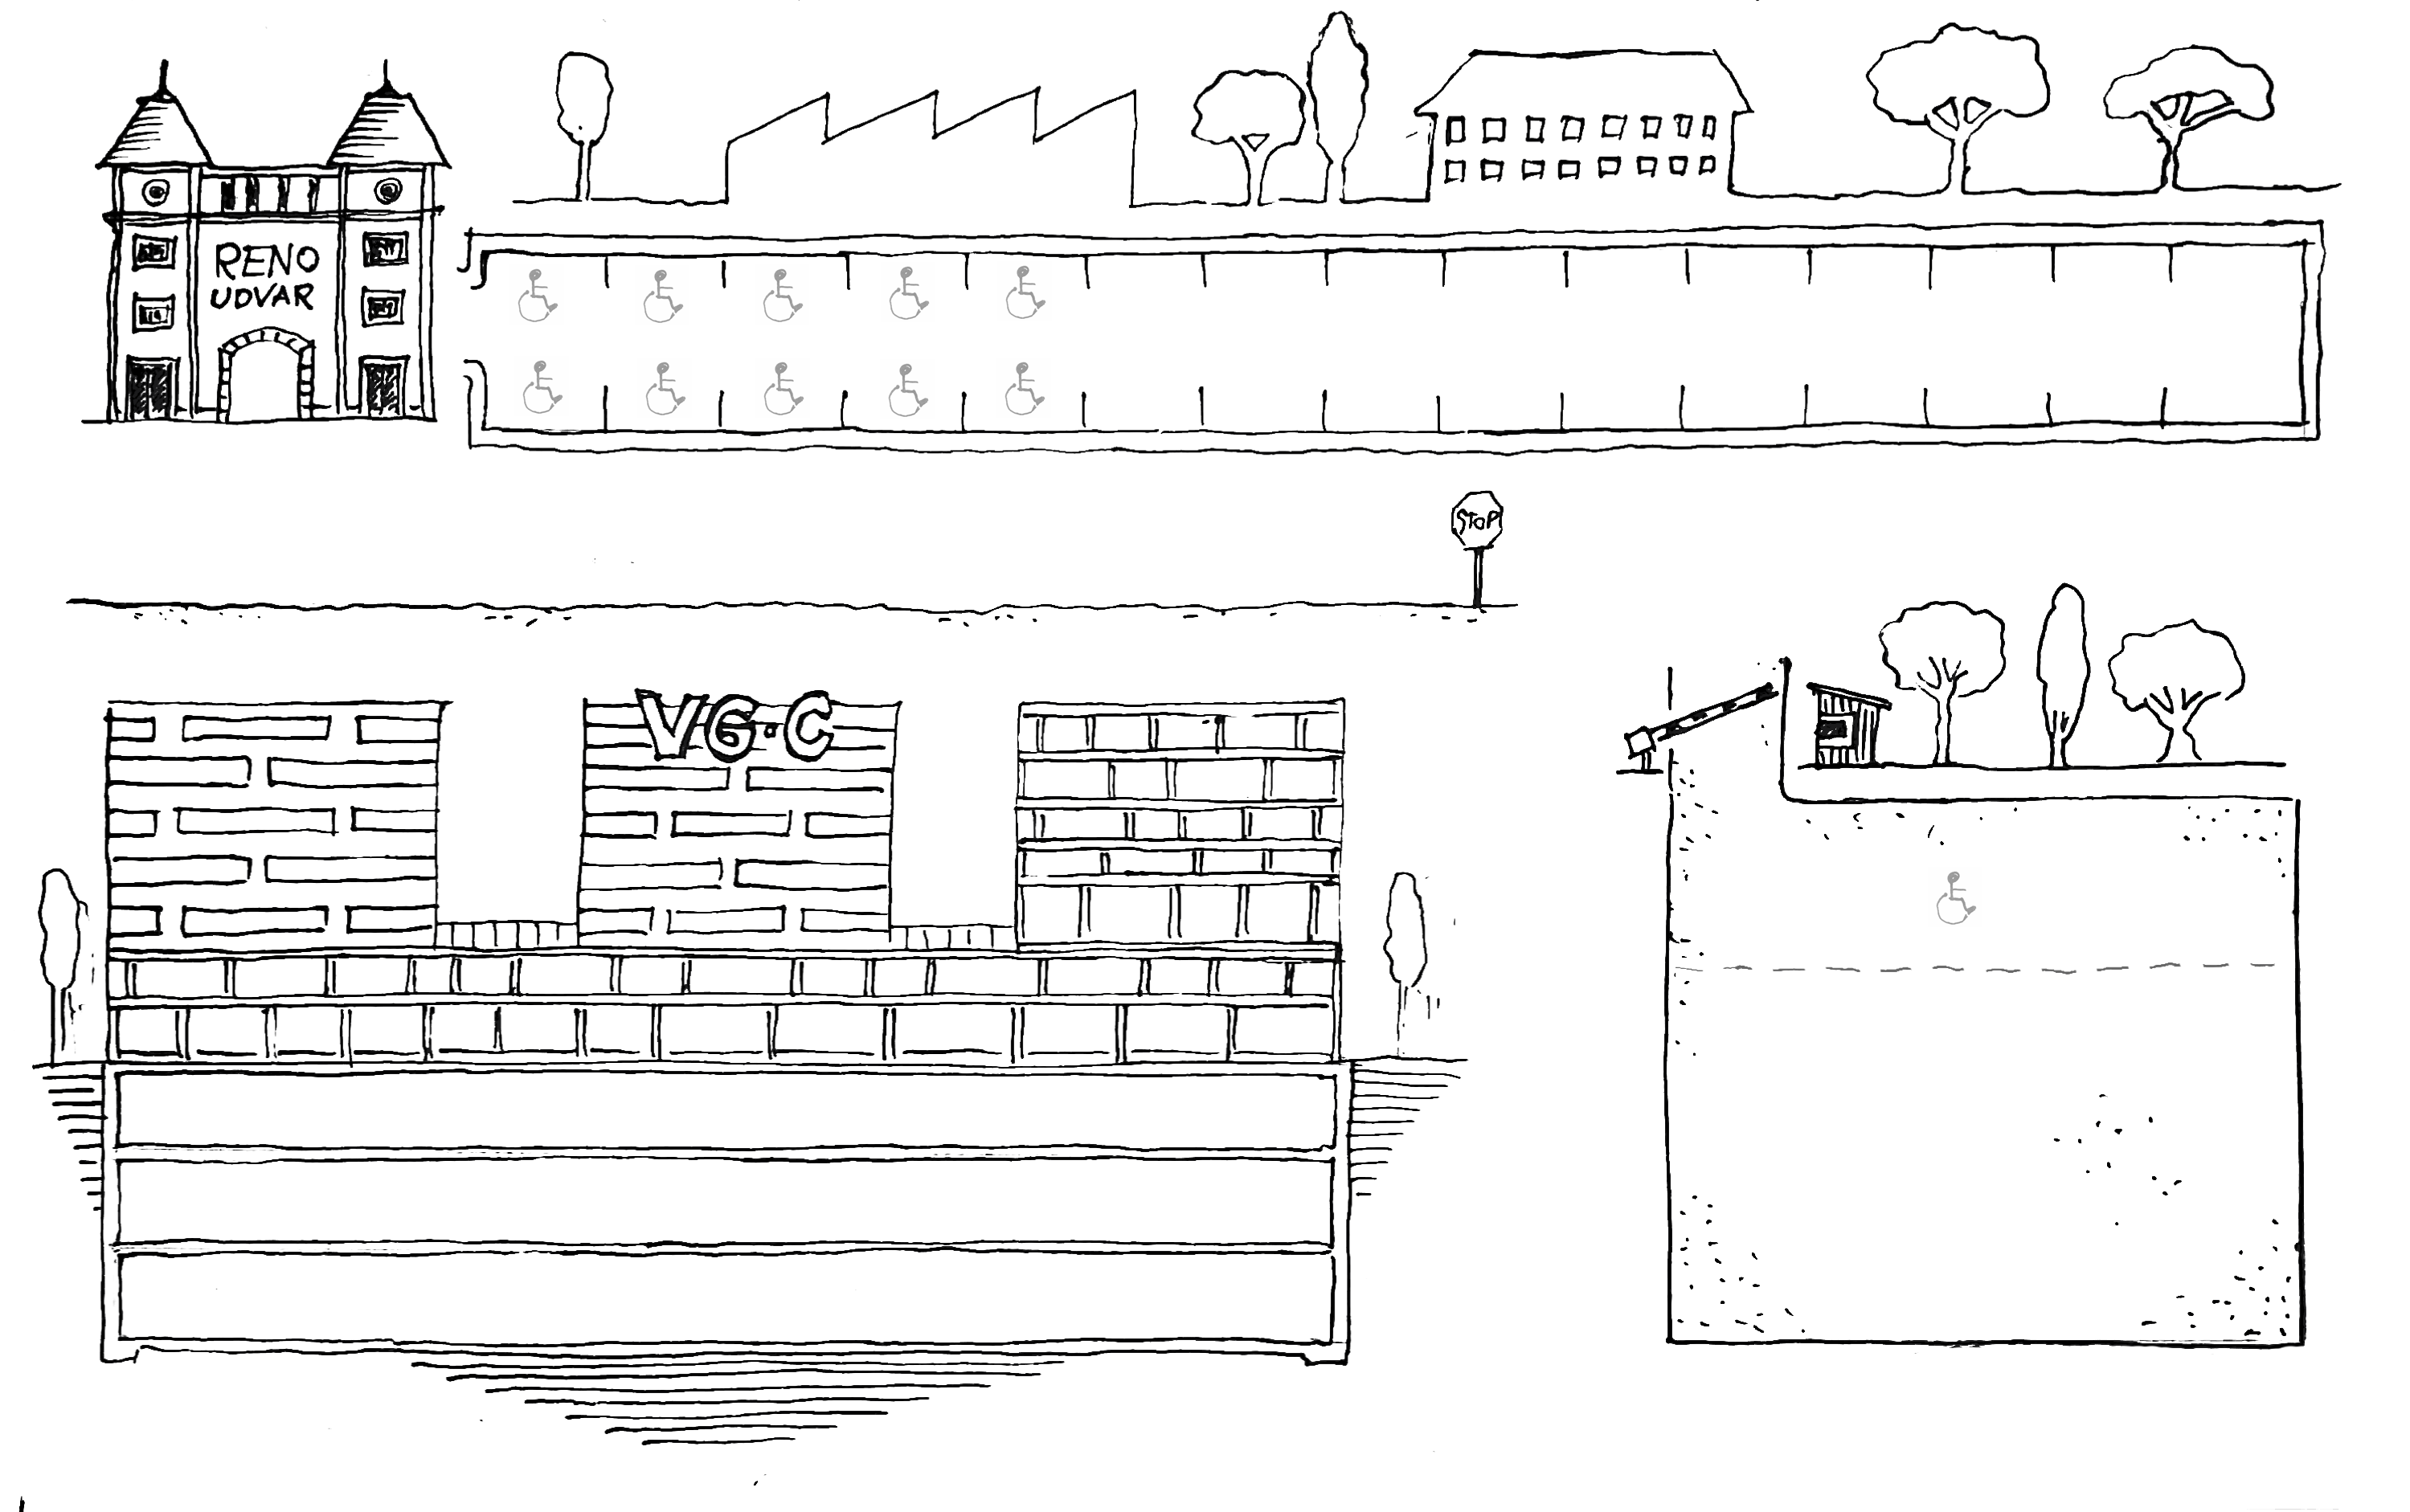 RENO
UDVAR
STOP
VG·C